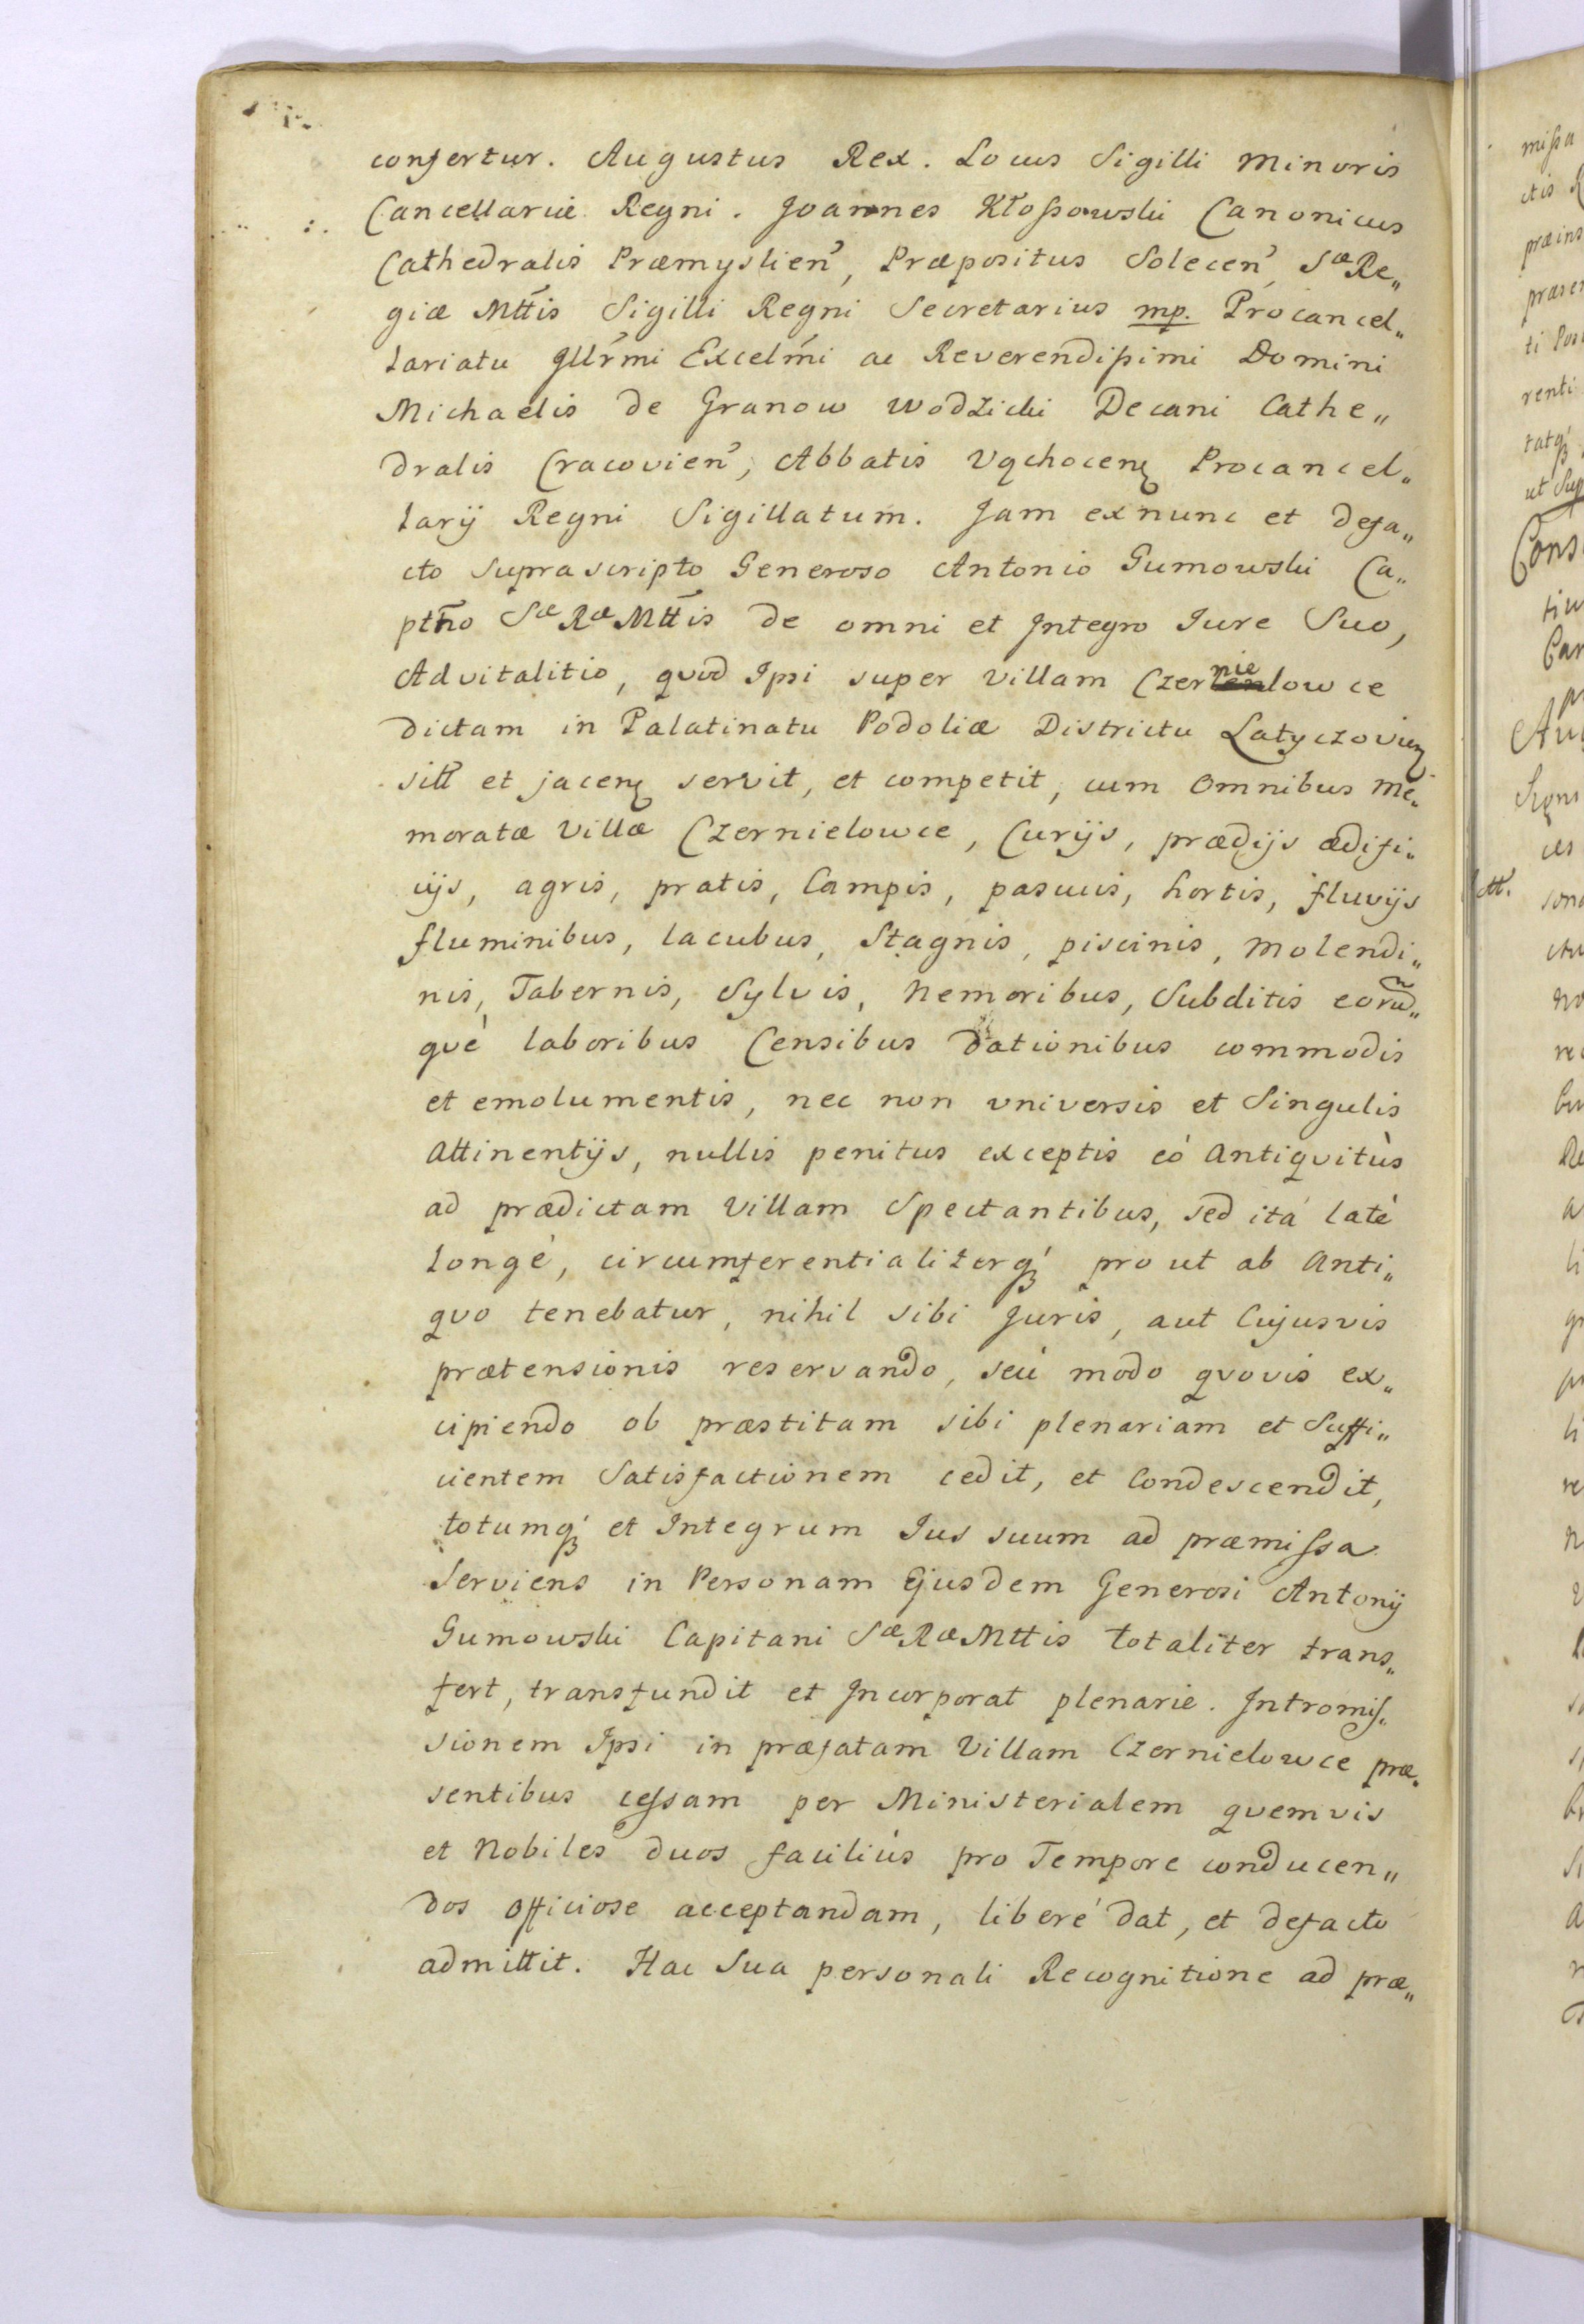 confertur. Augustus Rex. Locus Sigilli Minoris
Cancellariæ Regni. Joannes Kłossowski Canonicus
Cathedralis Præmyslien̄, Præpositus Solecen̄, Sæ Re„
giæ Mttis Sigilli Regni Secretarius mp. Procancel„
lariatu Jllr̄mi Excelm̄i ac Reverendissimi Domini
Michaelis de Granow Wodzicki Decani Cathe„
dralis Cracovien̄, Abbatis Vqchocen. Procancel„
larij Regni Sigillatum. Jam exnunc et defa„
cto suprascripto Generoso Antonio Gumowski Ca„
ptn̄o Sæ Ræ Mttis de omni et Jntegro Jure Suo,
Advitalitio, quod Ipsi super Villam Czernielowce
dictam in Palatinatu Podoliæ Districtu Latyczovien.
sitt̄ et jacen. servit, et competit, cum Omnibus me„
moratæ Villæ Czernielowce, Curijs, prædijs ædifi„
cijs, agris, pratis, Campis, pascuis, hortis, fluvijs
fluminibus, lacubus, Stagnis, piscinis, Molendi„
nis, Tabernis, Sylvis, Nemoribus, Subditis eorud̄„
què laboribus Censibus dationibus commodis
et emolumentis, nec non vniversis et Singulis
Attinentijs, nullis penitus exceptis eó Antiqvitùs
ad prædictam Villam Spectantibus, sed itá latè
longè, circumferentialiterq́ꝫ prout ab Anti„
qvo tenebatur, nihil sibi Juris, aut Cujusvis
prætensionis reservando, seú modo qvovis ex„
cipiendo ob præstitam sibi plenariam et Suffi„
cientem Satisfactionem cedit, et Condescendit,
totumq́ꝫ et Integrum Jus suum ad præmissa
Serviens in Personam Ejusdem Generosi Antonij
Gumowski Capitani Sæ Ræ Mttis totaliter trans„
fert, transfundit et Jncorporat plenarie. Jntromis„
sionem Ipsi in præfatam Villam Czernielowce præ„
sentibus cessam per Ministerialem qvemvis
et Nobiles duos faciliùs pro Tempore conducen„
dos Officiose acceptandam, liberé dat, et defacto
admittit. Hac Sua personali Recognitione ad præ„